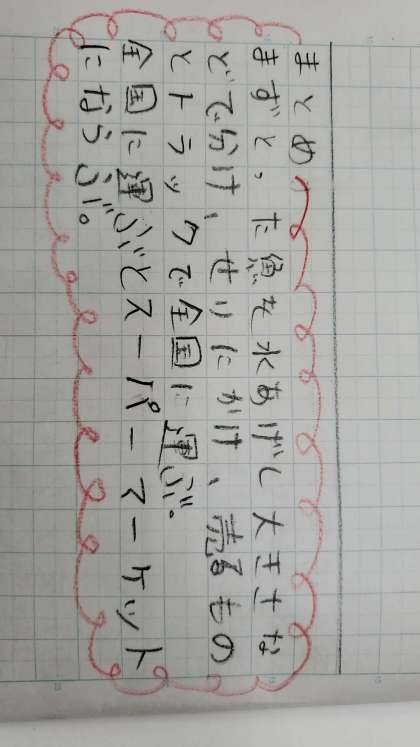 まとめ
まずとった魚を水あげし大きさな
どで分け、せりにかけ、売るもの
とトラックで全国に運ぶ。
全国に運ぶとスーパーマーケット
にならぶ。